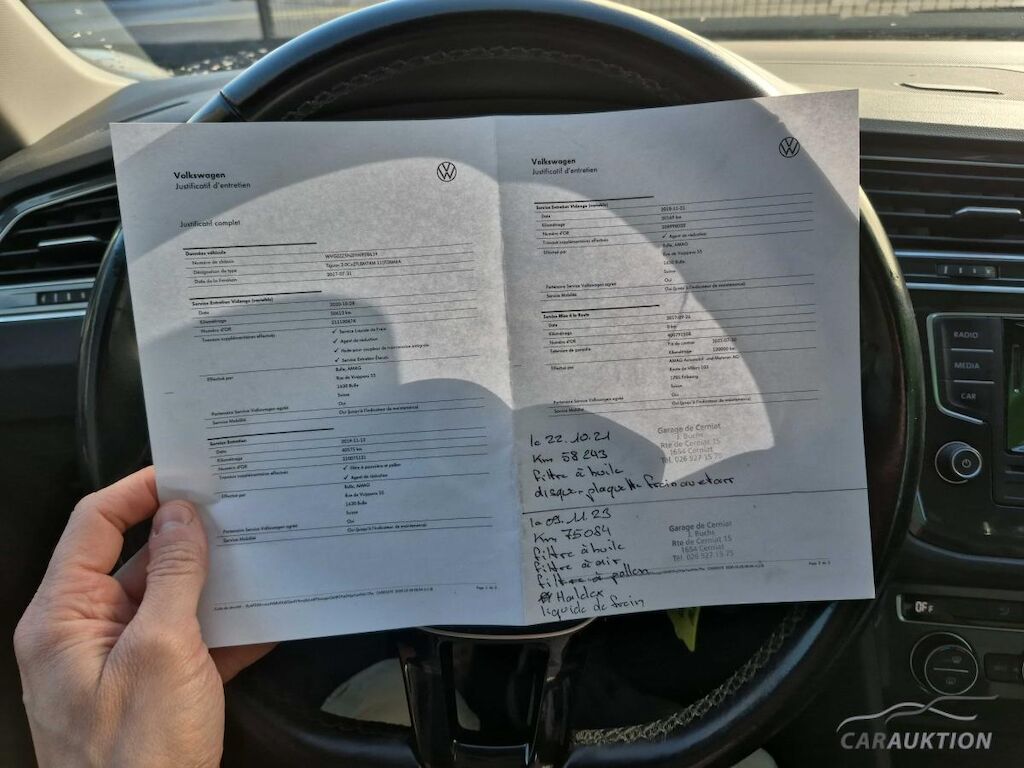 Volkswagen
Justificatif d'entretien
Justificatif complet
Données véhicule
Numéro de châssis
Désignation de type
Date de la livraison
2017-07-31
Service Entretien Vidange (variable)
Date 2020-10-28
Kilométrage 50613 km
Numéro d'OR
Travaux supplémentaires effectués ✓ Service Liquide de frein
✓ Agent de réduction
✓ Huile pour coupleur de transmission intégrale
✓ Service Entretien Étendu
Effectué par Bulle, AMAG
Rue de Vuippens 55
1630 Bulle
Suisse
Partenaire Service Volkswagen agréé Oui
Service Mobilité Oui (jusqu'à l'indicateur de maintenance)
Service Entretien
Date 2019-11-13
Kilométrage 40575 km
Numéro d'OR
Travaux supplémentaires effectués ✓ filtre à poussière et pollen
✓ Agent de réduction
Effectué par Bulle, AMAG
Rue de Vuippens 55
1630 Bulle
Suisse
Partenaire Service Volkswagen agréé Oui
Service Mobilité Oui (jusqu'à l'indicateur de maintenance)
Volkswagen
Justificatif d'entretien
Service Entretien Vidange (variable)
Date 2018-11-21
Kilométrage
Numéro d'OR
Travaux supplémentaires effectués ✓ Agent de réduction
Effectué par Bulle, AMAG
Rue de Vuippens 55
1630 Bulle
Suisse
Partenaire Service Volkswagen agréé Oui
Service Mobilité Oui (jusqu'à l'indicateur de maintenance)
Service Mise à la Route
Date
Kilométrage 0 km
Numéro d'OR
Extension de garantie
Kilométrage
Effectué par AMAG Automobil- und Motoren AG
Route de Villars 103
Fribourg
Suisse
Partenaire Service Volkswagen agréé Oui
Service Mobilité Oui (jusqu'à l'indicateur de maintenance)
le 22.10.21
Km 58243
filtre à huile
disque, plaquette frein av et arr
Garage de Cerniat
J. Buchs
Rte de Cerniat 15
1654 Cerniat
Tél. 026 927 15 75
le 09.11.23
Km 75084
filtre à huile
filtre à air
filtre à pollen
Haldex
liquide de frein
Garage de Cerniat
J. Buchs
Rte de Cerniat 15
1654 Cerniat
Tél. 026 927 15 75
RADIO
MEDIA
CAR
OFF
CARAUKTION